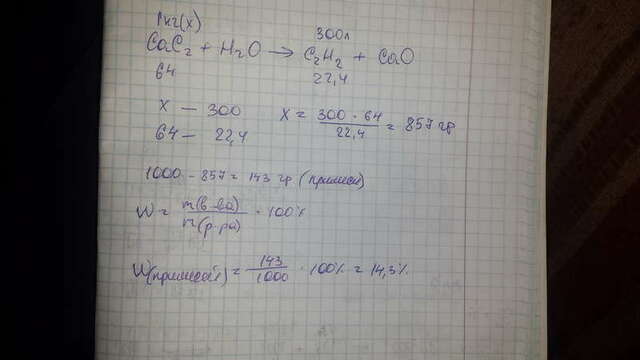 1кг(x) 300л
CaC2 + H2O → C2H2 + CaO
64 22,4
x — 300 x = 300 · 64 / 22,4 = 857 гр
64 — 22,4
1000 - 857 = 143 гр (примеси)
W = m(в-ва) / m(р-ра) · 100%
W(примесей) = 143 / 1000 · 100% = 14,3%